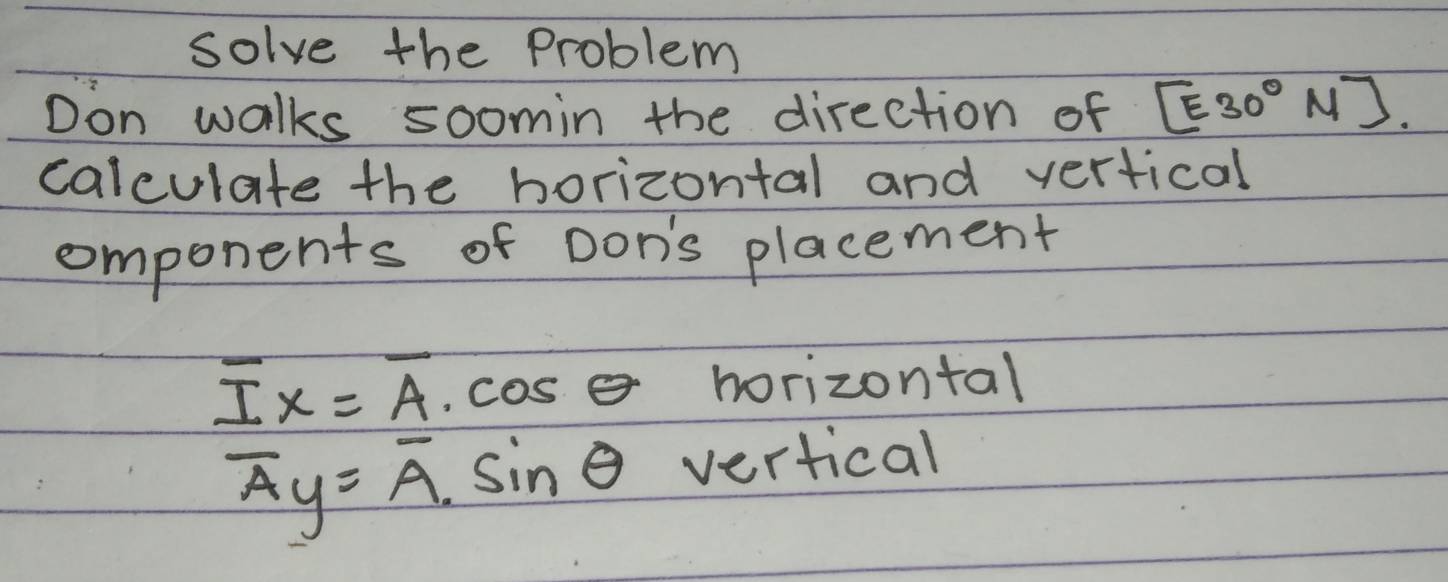 solve the Problem
Don walks 500min the direction of [E30° N].
calculate the horizontal and vertical
omponents of Don's placement
I̅x = A̅. cos θ horizontal
A̅y = A̅. Sin θ vertical